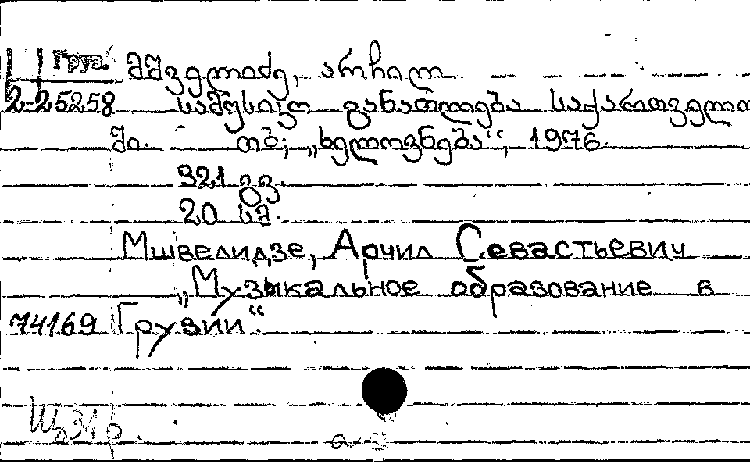 Груз. მშველიძე, არჩილ
2-25258 სამუსიკო განათლება საქართველო
ში. თბ., „ხელოვნება“, 1976.
321 გვ.
20 სმ.
Мшвелидзе, Арчил Севастьевич
„Музыкальное образование в
74169 Грузии“.